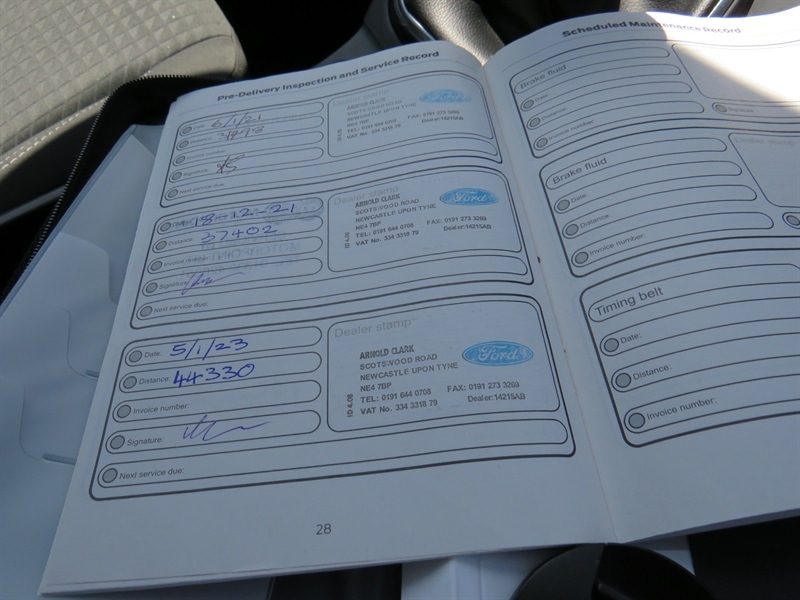 Pre-Delivery Inspection and Service Record
Date: 6/1/21
Distance:
Invoice number:
Signature:
Next service due:
Dealer stamp
ARNOLD CLARK
SCOTSWOOD ROAD
NEWCASTLE UPON TYNE
NE4 7BP
TEL: 0191 644 0708 FAX: 0191 273 3269
VAT No. 334 3318 79 Dealer:14215AB
ID 4.06
Ford
Date: 18-12-21
Distance: 37402
Invoice number:
Signature:
Next service due:
Dealer stamp
ARNOLD CLARK
SCOTSWOOD ROAD
NEWCASTLE UPON TYNE
NE4 7BP FAX: 0191 273 3269
TEL: 0191 644 0708 Dealer:14215AB
VAT No. 334 3318 79
ID 4.06
Ford
Date: 5/1/23
Distance: 44330
Invoice number:
Signature:
Next service due:
Dealer stamp
ARNOLD CLARK
SCOTSWOOD ROAD
NEWCASTLE UPON TYNE
NE4 7BP
TEL: 0191 644 0708 FAX: 0191 273 3269
VAT No. 334 3318 79 Dealer:14215AB
ID 4.06
Ford
28
Scheduled Maintenance Record
Brake fluid
Date:
Distance:
Invoice number:
Signature:
Brake fluid
Date:
Distance:
Invoice number:
Timing belt
Date:
Distance:
Invoice number: